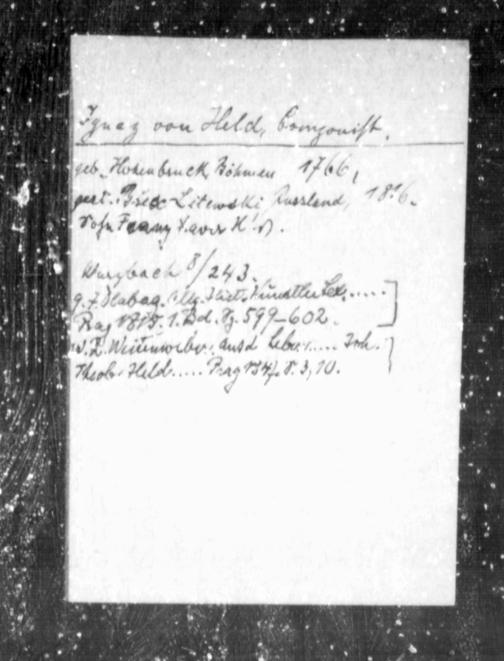 Ignaz von Held, Componist.
geb. Hohenbruck Böhmen 1766,
gest. Brzesc Litewski, Russland, 1816.
Sohn Franz Xaver H.'s).
Wurzbach 8/243.
g. J. Dlabač. Allg. Hist. Künstler Lex. .....
Prag 1815. 1. Bd. Pg. 599-602.
W. R. Weitenweber: aus d Leben ..... Joh.
Theob. Held ..... Prag S. 3, 10.